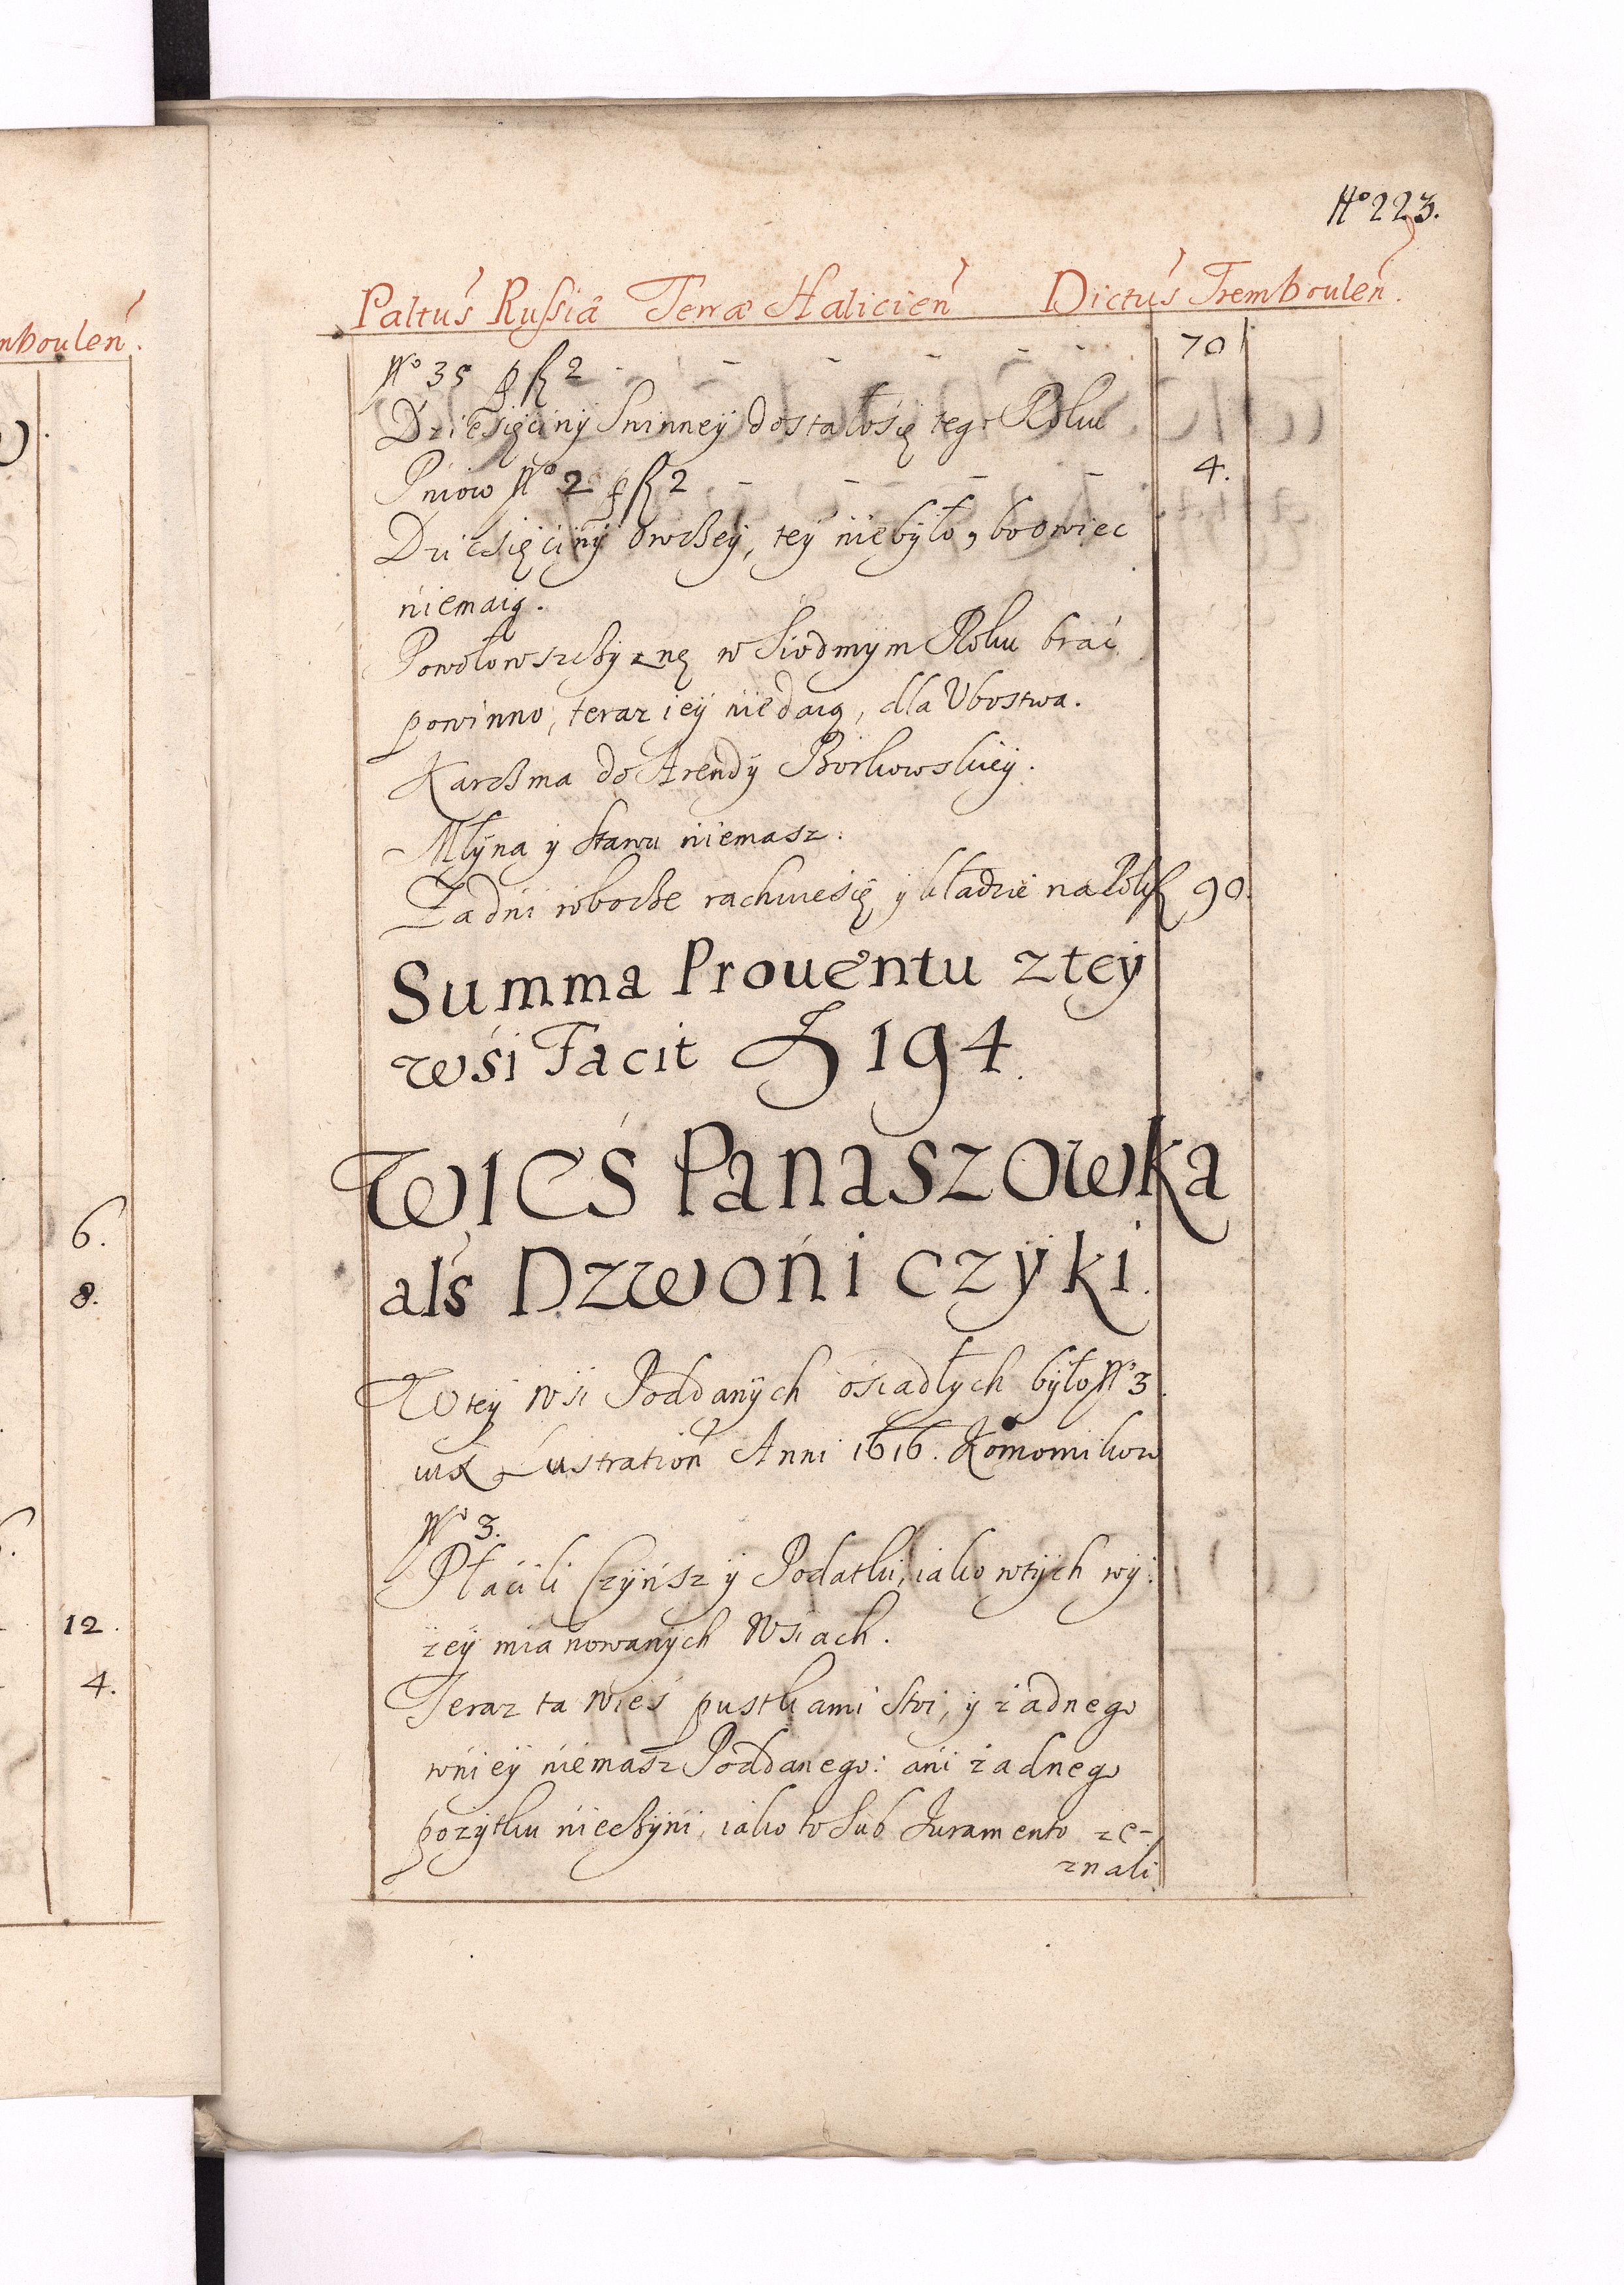 Nº 223.
Paltus Russiæ Terræ Halicien Dictus Tremboulen.
mboulen.
Nº 35 p fl 2 - - - - - 70
Dziesięciny Swinney dostałosię tego Roku
Pniow Nº 2 p fl 2 - - - - 4.
Dziesięciny owczey, tey niebyło, bo owiec
niemaią.
Powołowszczyznę w Siodmym Roku brać
powinno, teraz iey niedaią, dla Vbostwa.
Karczma do Arendy Borkowskiey.
Młyna y Stawu niemasz.
Za dni robocze rachuiesię y kładzie na Rok fl 90.
Summa Prouentu z tey
wśi Facit fl 194.
Wieś Panaszowka
als Dzwoniczyki.
W tey wsi Poddanych osiadłych było Nº 3.
iux Lustration Anni 1616. Komornikow
Nº 3.
Płacili Czynsz y Podatki, iako w tych wy:
zey mianowanych Wsiach.
Teraz ta Wieś pustkami Stoi, y żadnego
wniey niemasz Poddanego: ani żadnego
pożytku nieczyni, iako to Sub Iuramento ze-
znali
6.
8.
12.
4.